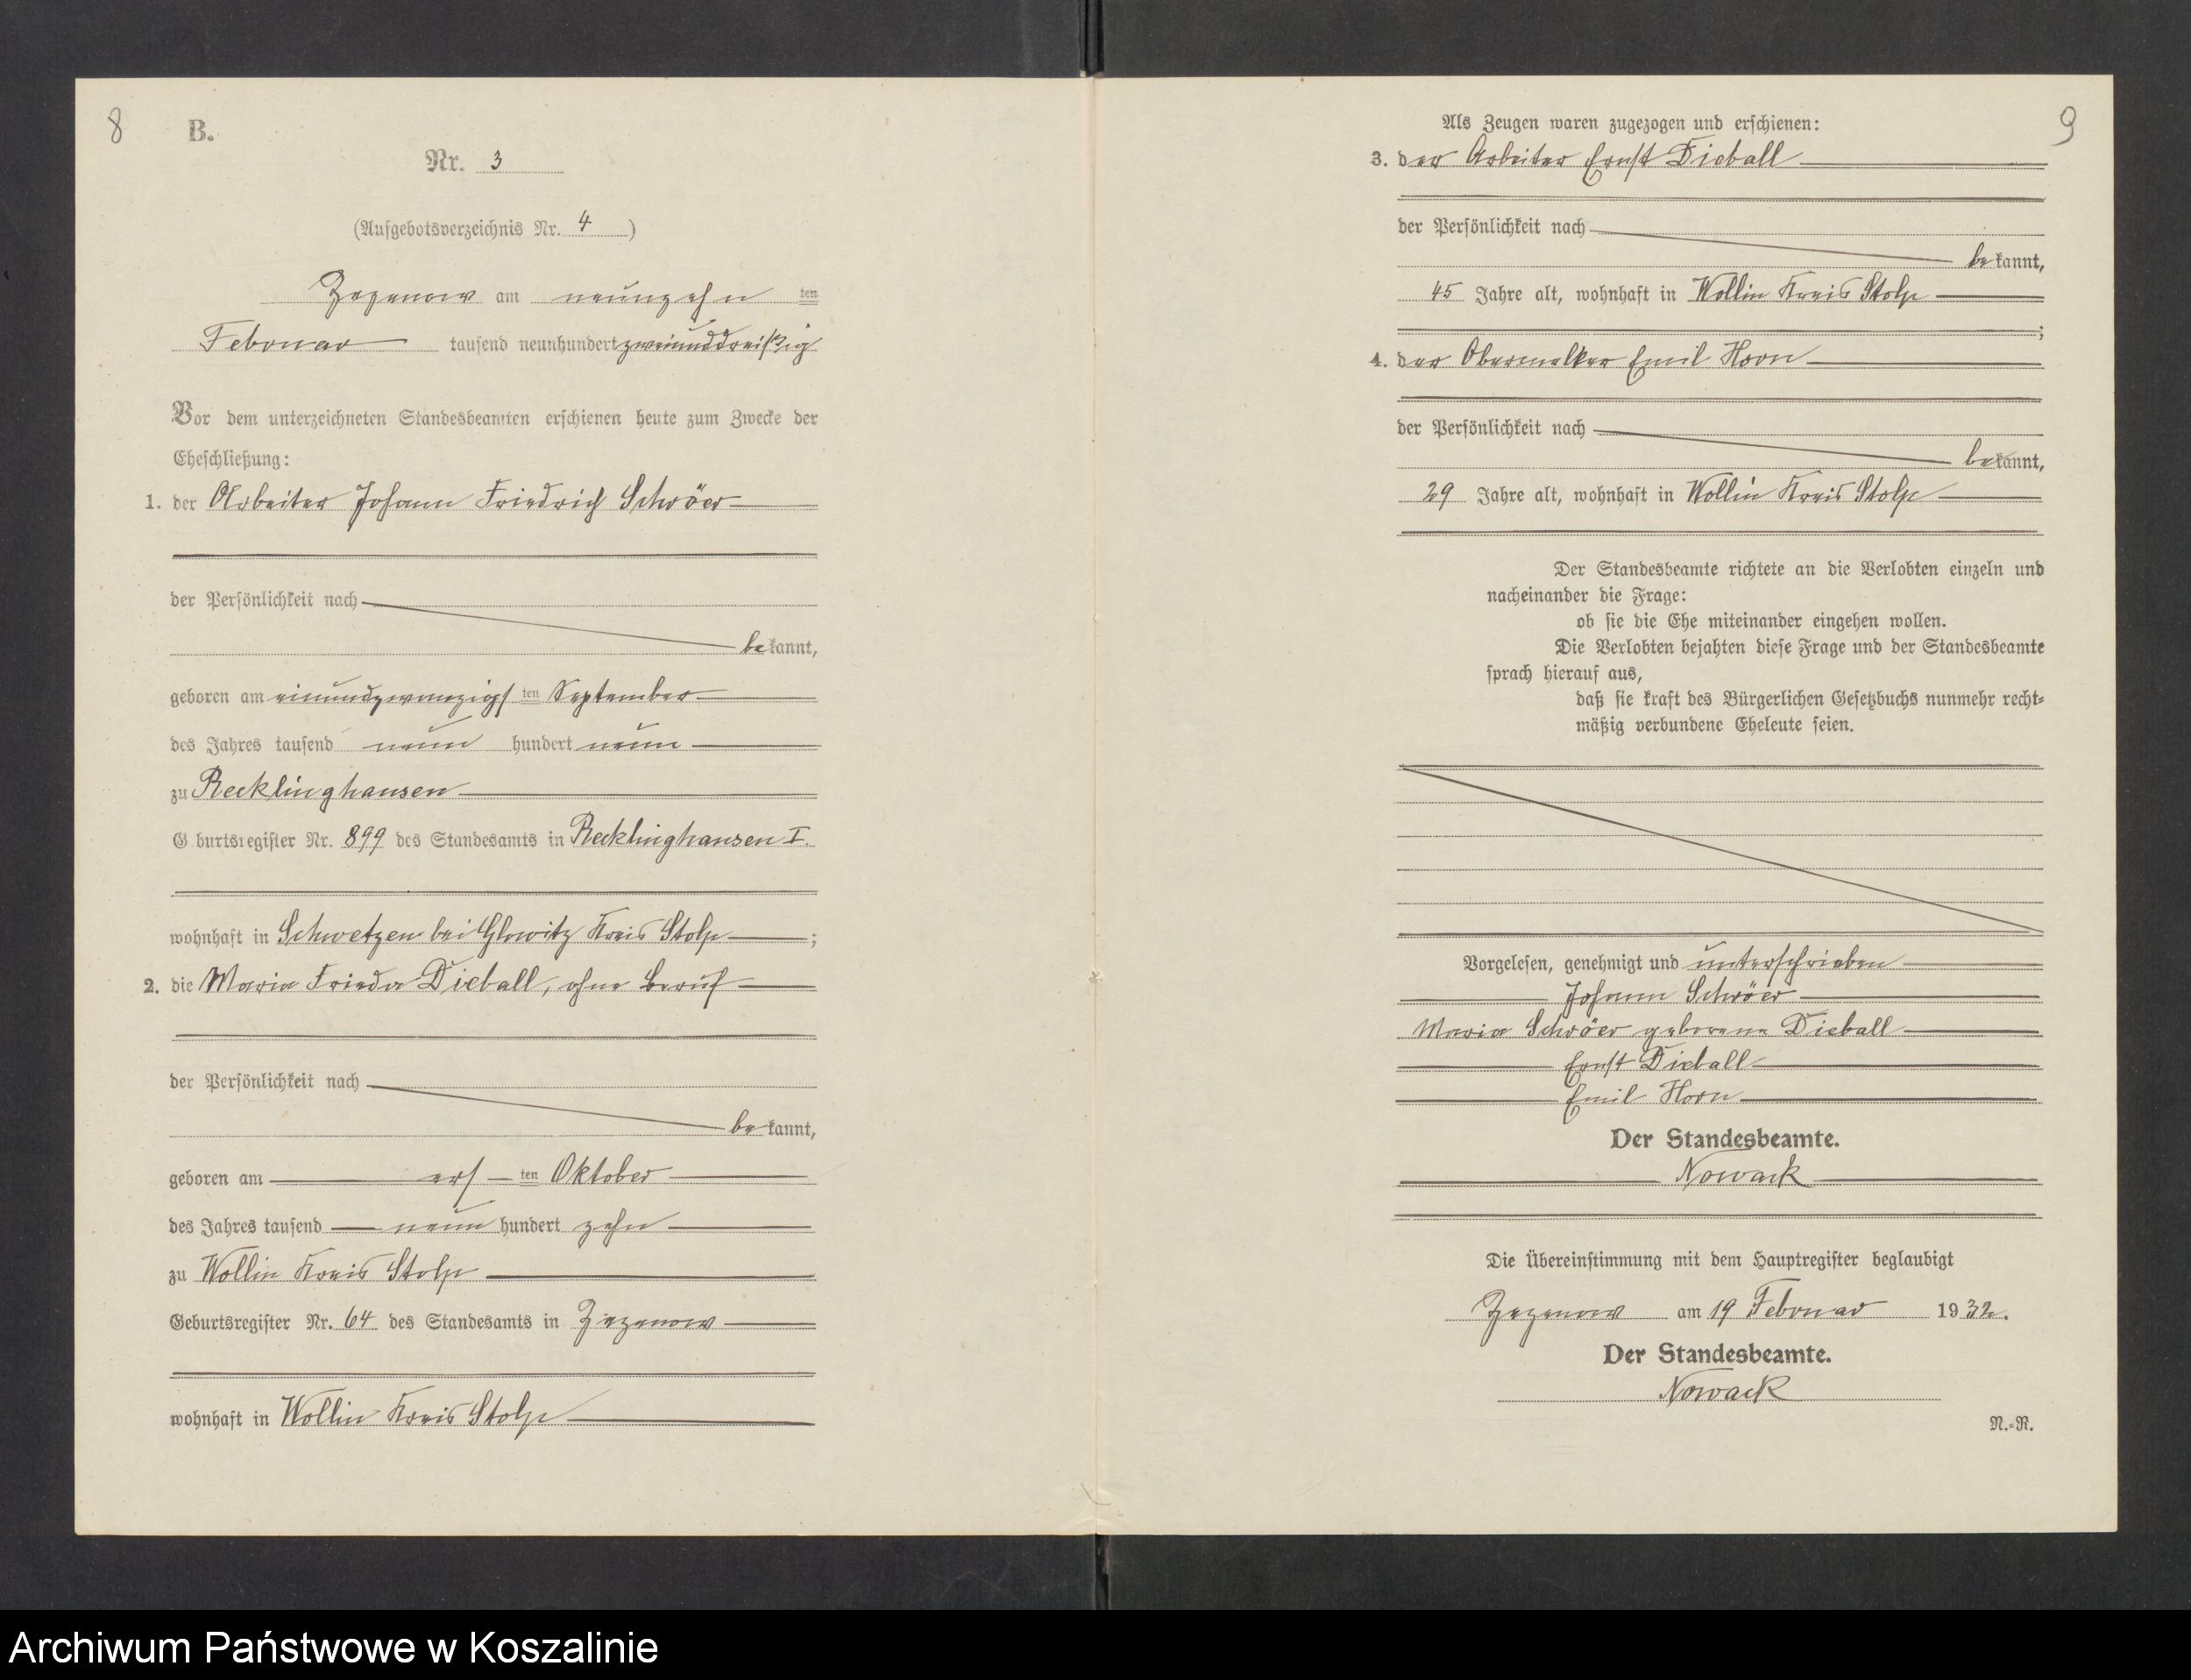 8
B.
Nr. 3
(Aufgebotsverzeichnis Nr. 4)
Zezenow am neunzehn ten
Februar tausend neunhundert zweiunddreißig
Vor dem unterzeichneten Standesbeamten erschienen heute zum Zwecke der
Eheschließung:
1. der Arbeiter Johann Friedrich Schröer
der Persönlichkeit nach
be kannt,
geboren am einundzwanzigs ten September
des Jahres tausend neun hundert neun
zu Recklinghausen
G burtsregister Nr. 899 des Standesamts in Recklinghausen I.
wohnhaft in Schwetzen bei Glowitz Kreis Stolp ;
2. die Maria Frieda Dieball, ohne Beruf
der Persönlichkeit nach
be kannt,
geboren am ers ten Oktober
des Jahres tausend neun hundert zehn
zu Wollin Kreis Stolp
Geburtsregister Nr. 64 des Standesamts in Zezenow
wohnhaft in Wollin Kreis Stolp
9
Als Zeugen waren zugezogen und erschienen:
3. der Arbeiter Ernst Dieball
der Persönlichkeit nach
be kannt,
45 Jahre alt, wohnhaft in Wollin Kreis Stolp
;
4. der Obermelker Emil Horn
der Persönlichkeit nach
be kannt,
29 Jahre alt, wohnhaft in Wollin Kreis Stolp
Der Standesbeamte richtete an die Verlobten einzeln und
nacheinander die Frage:
ob sie die Ehe miteinander eingehen wollen.
Die Verlobten bejahten diese Frage und der Standesbeamte
sprach hierauf aus,
daß sie kraft des Bürgerlichen Gesetzbuchs nunmehr recht-
mäßig verbundene Eheleute seien.
Vorgelesen, genehmigt und unterschrieben
Johann Schröer
Maria Schröer geborene Dieball
Ernst Dieball
Emil Horn
Der Standesbeamte.
Nowack
Die Übereinstimmung mit dem Hauptregister beglaubigt
Zezenow am 19 Februar 1932.
Der Standesbeamte.
Nowack
N.-R.
Archiwum Państwowe w Koszalinie